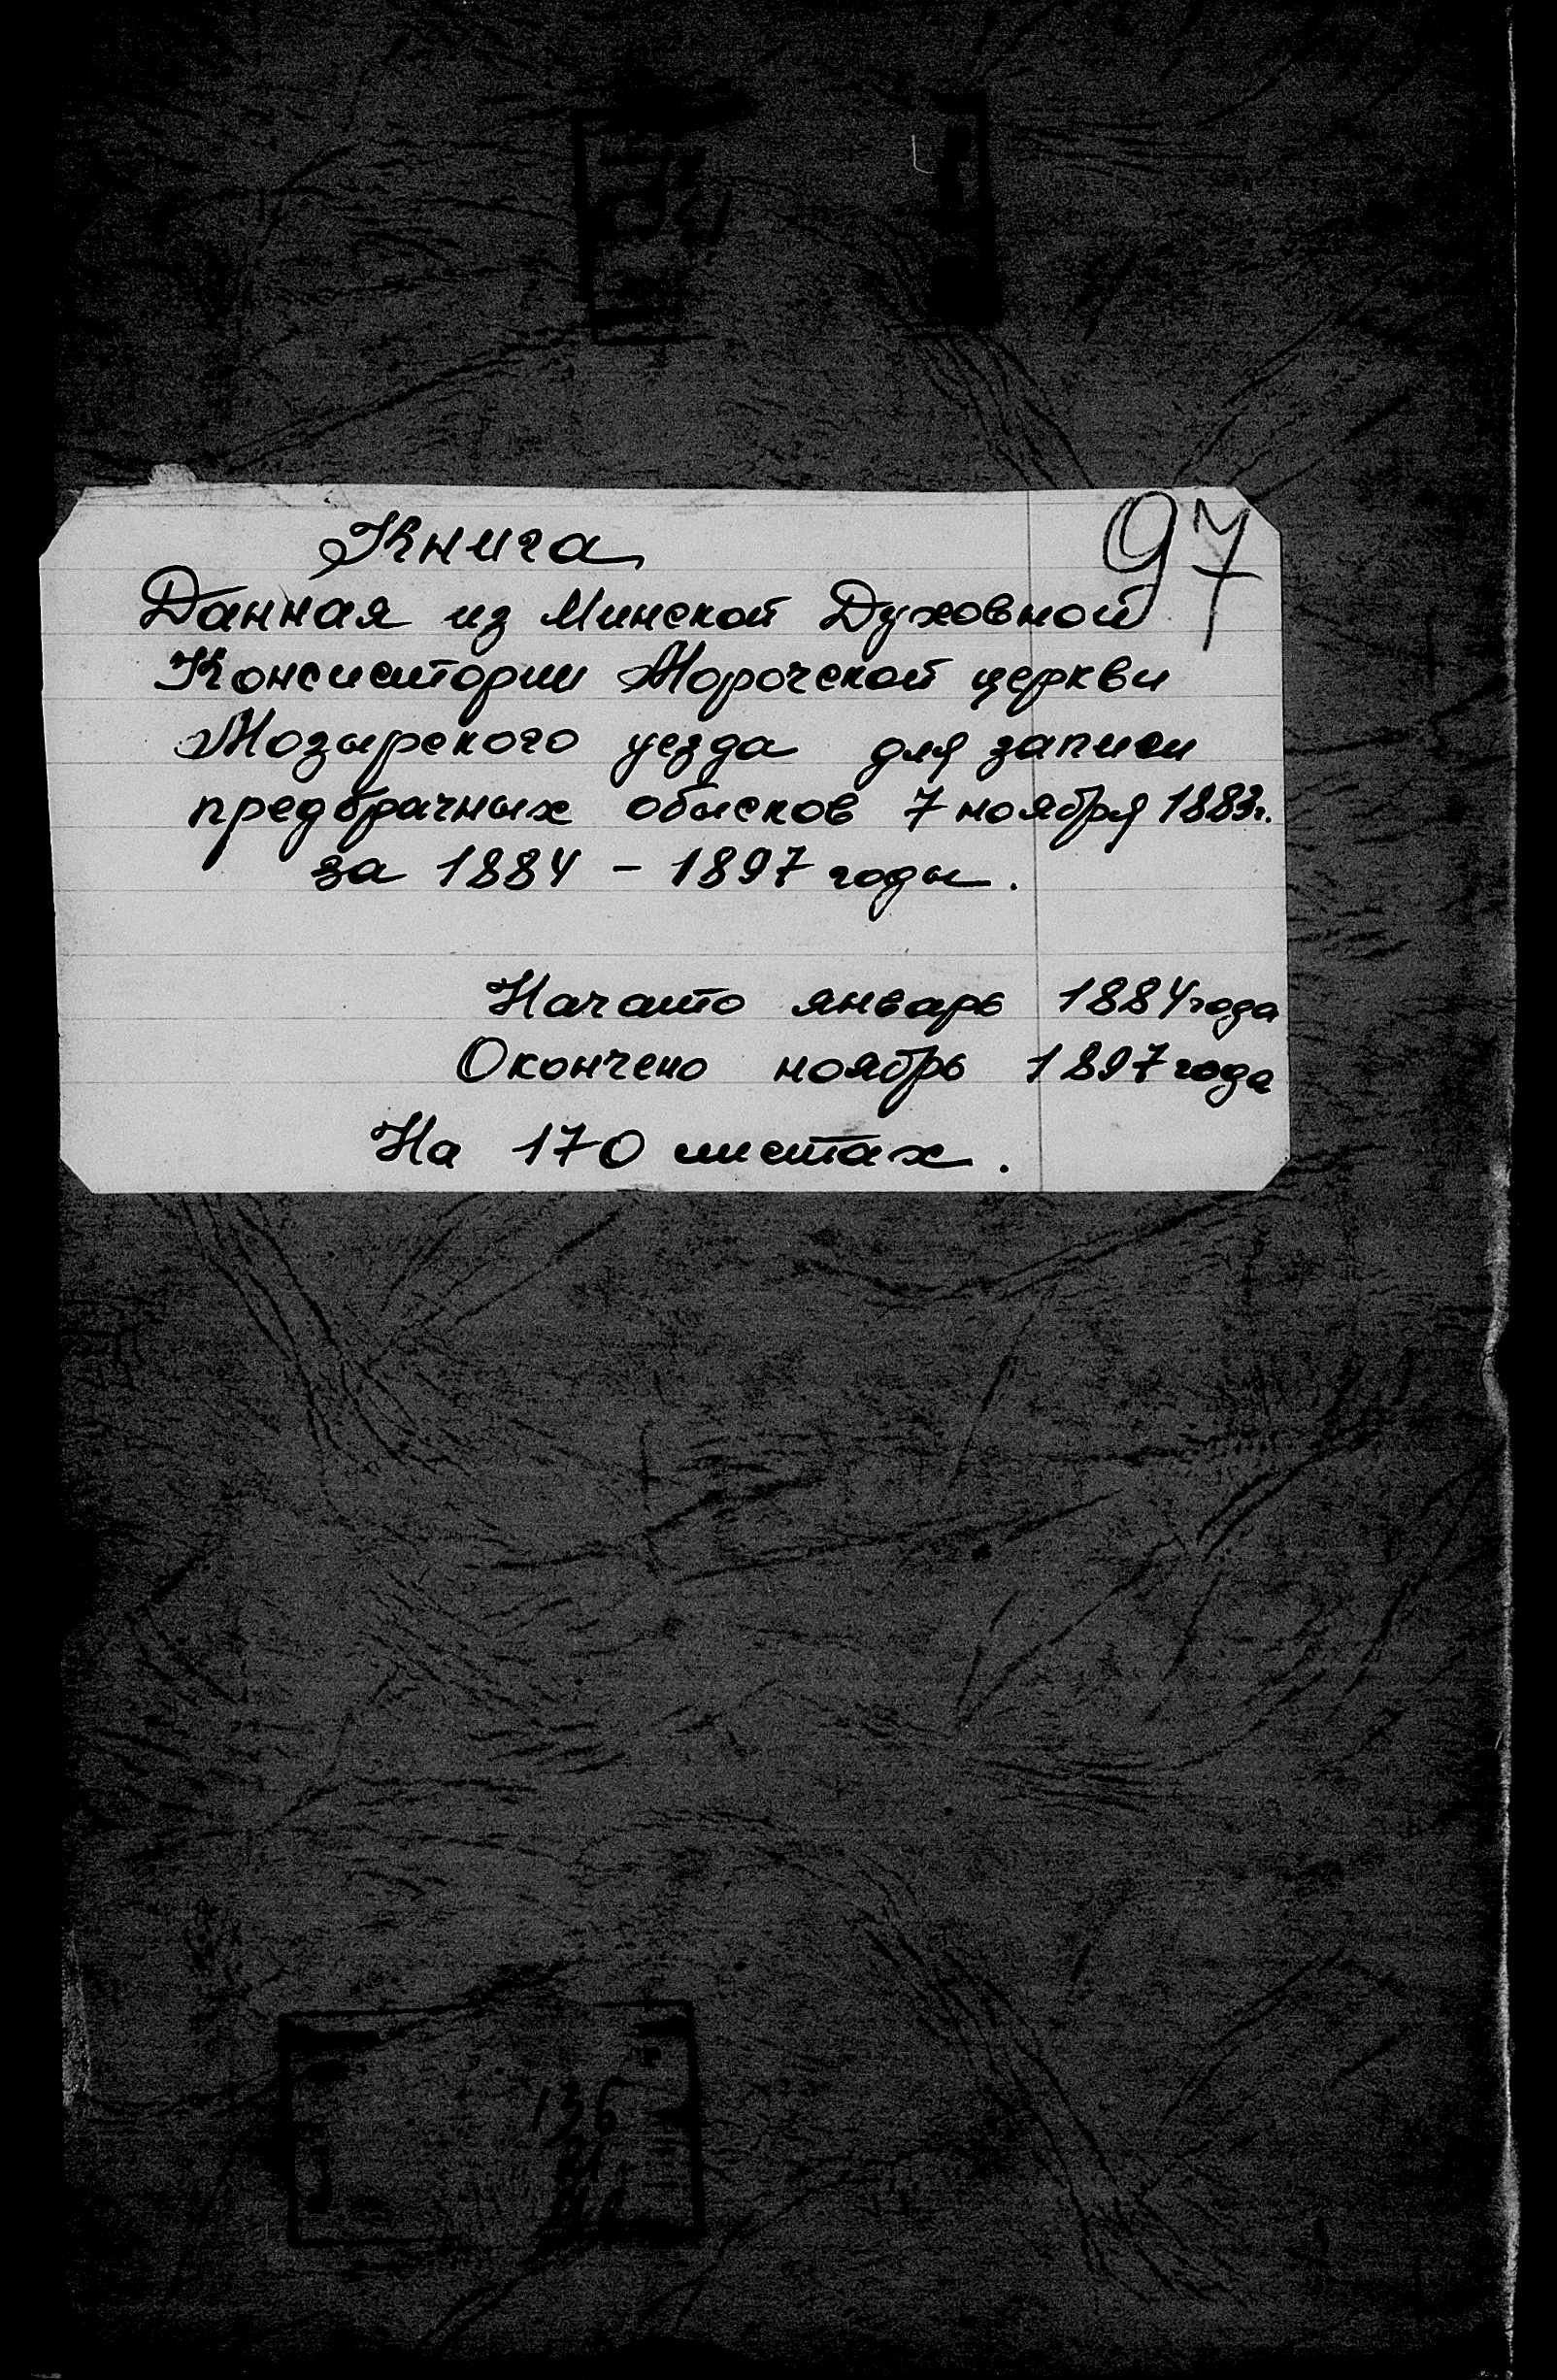 97
Книга
Данная из Минской Духовной
Консистории Морочской церкви
Мозырского уезда для записи
предбрачных обысков 7 ноября 1883г.
за 1884 - 1897 годы.
Начато январь 1884 года
Окончено ноябрь 1897 года
На 170 листах.
136